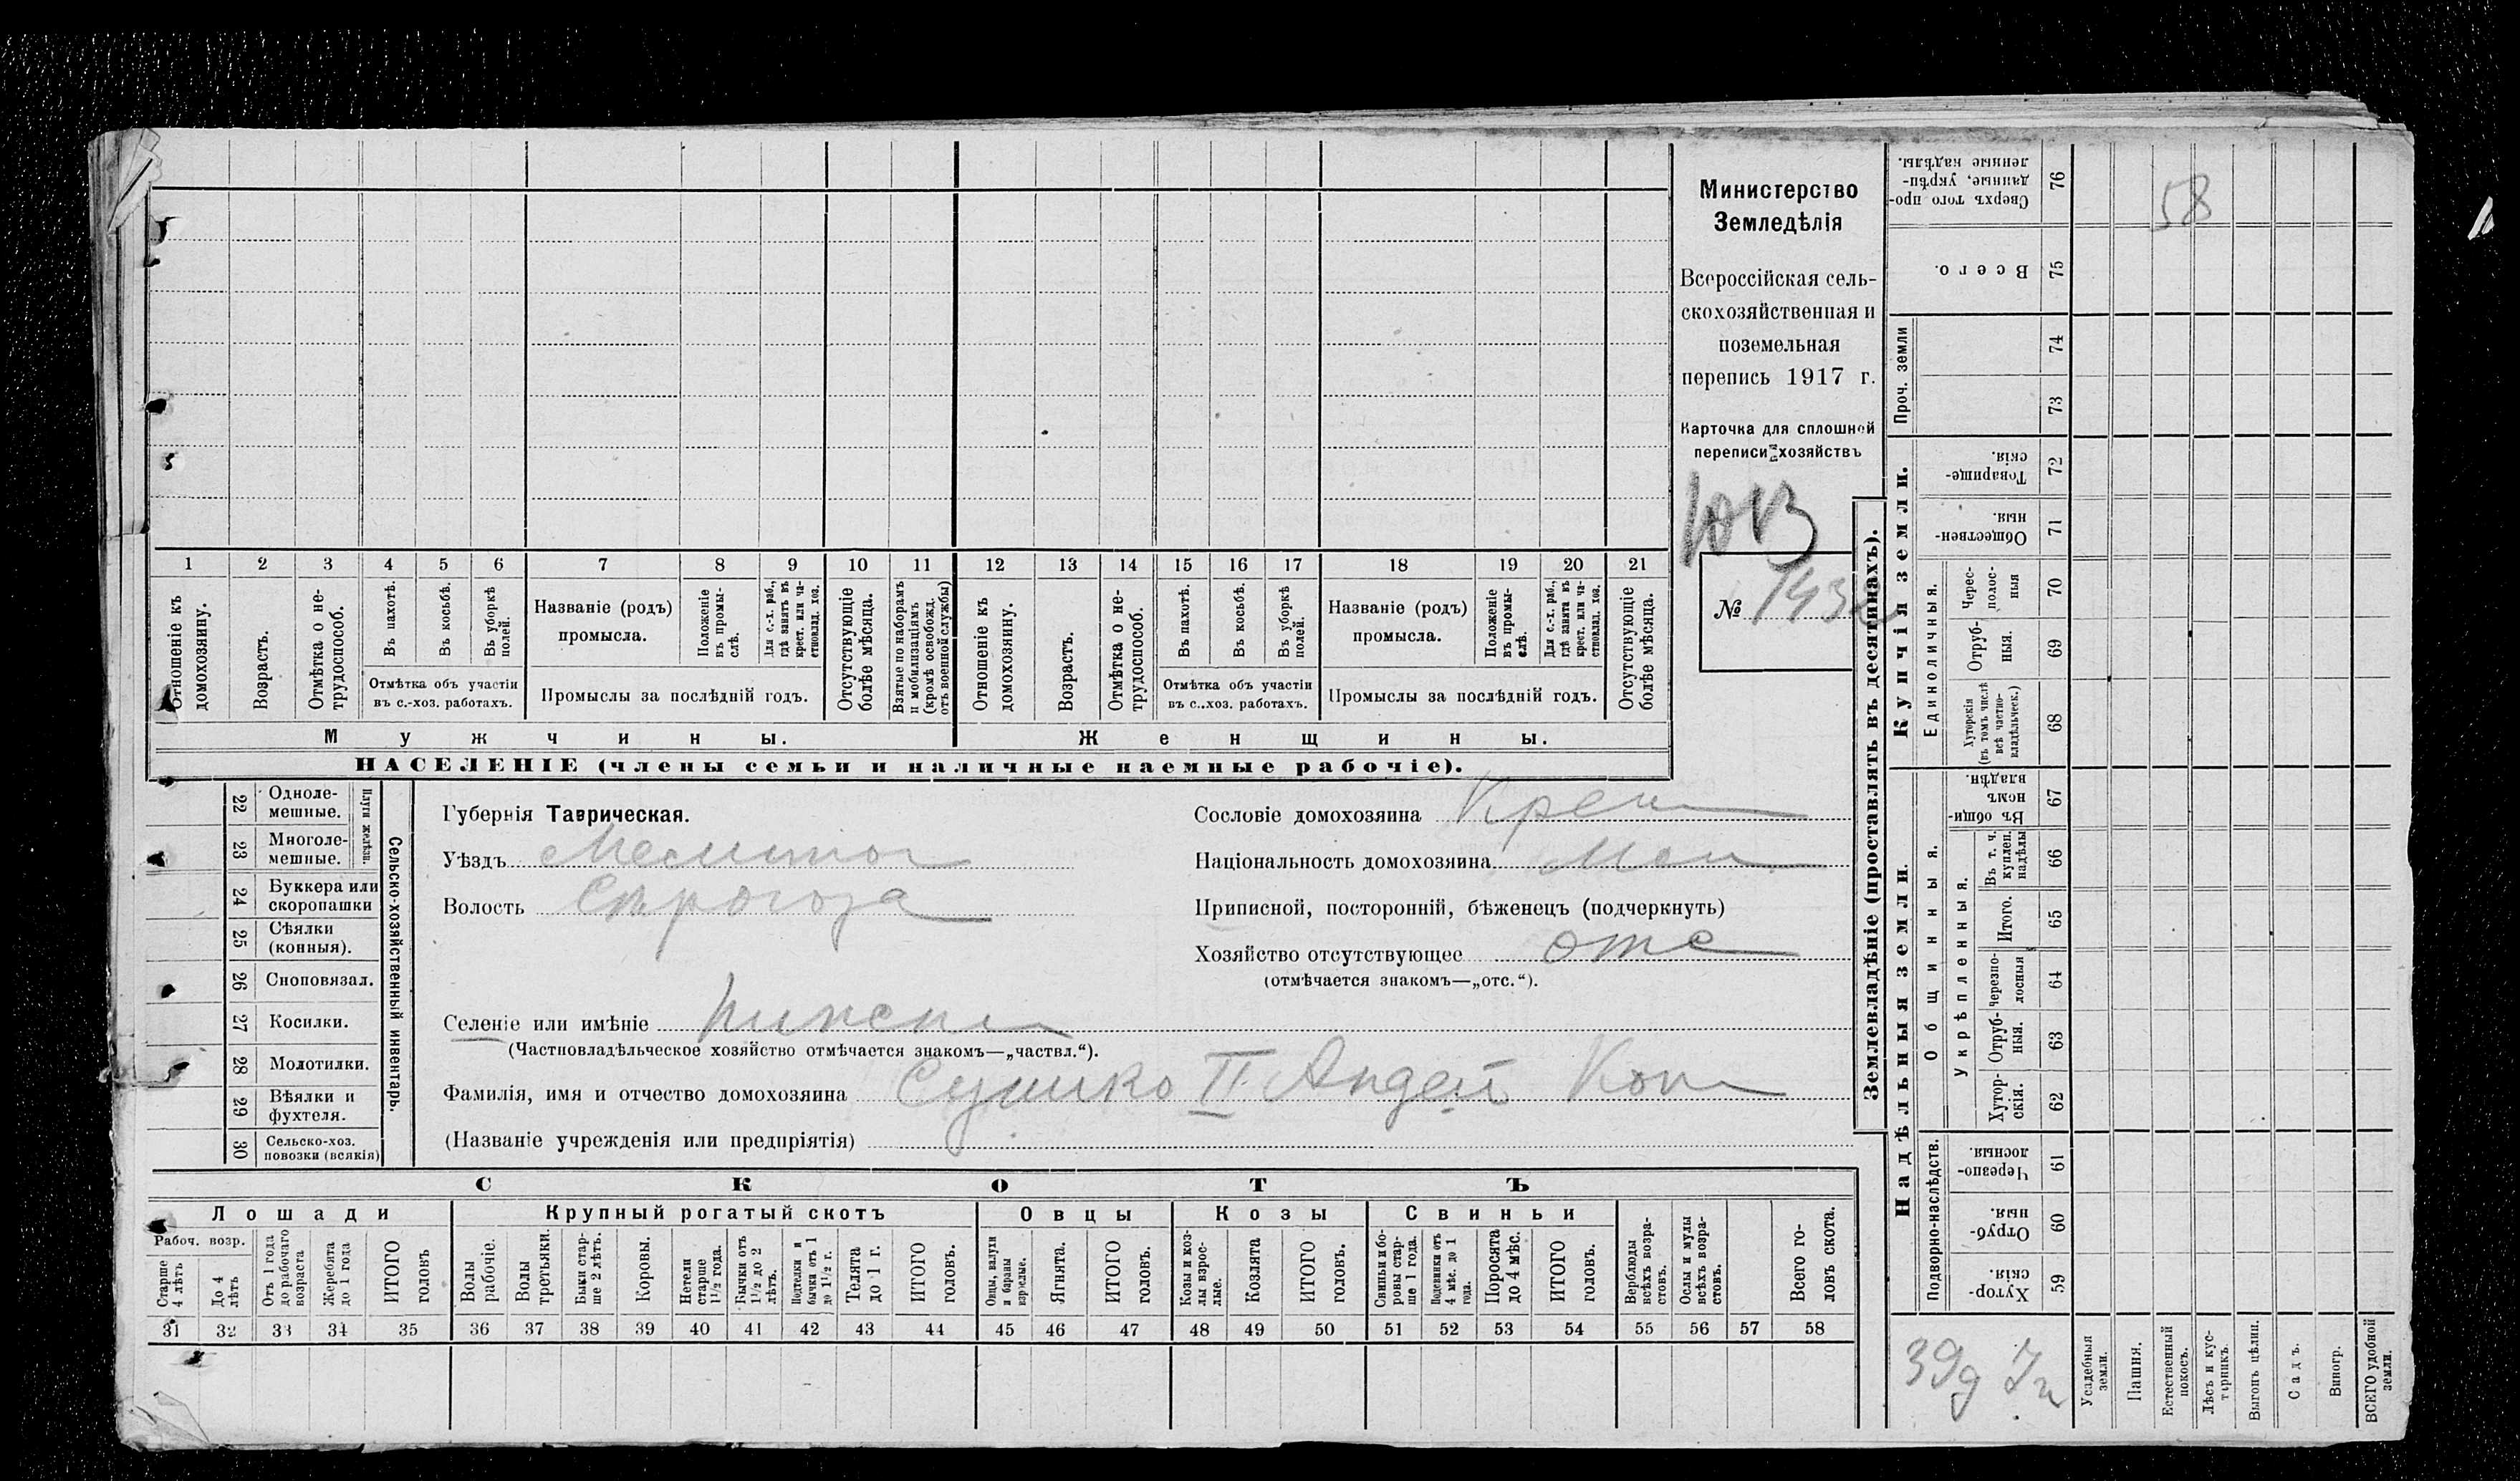 Министерство
Земледѣлія
Всероссійская сель-
скохозяйственная и
поземельная
перепись 1917 г.
Карточка для сплошной
переписи хозяйствъ
№
1 2 3 4 5 6 7 8 9 10 11 12 13 14 15 16 17 18 19 20 21
Отношеніе къ домохозяину.
Возрастъ.
Отмѣтка о не-трудоспособ.
Въ пахотѣ.
Въ косьбѣ.
Въ уборкѣ полей.
Отмѣтка объ участіи
въ с.-хоз. работахъ.
Названіе (родъ)
промысла.
Положеніе въ промы-слѣ.
Для с.-х. раб., гдѣ занятъ въ крест. или ча-стновлад. хоз.
Промыслы за послѣдній годъ.
Отсутствующіе болѣе мѣсяца.
Взятые по наборамъ и мобилизаціямъ (кромѣ освобожд. отъ военной службы)
Отношеніе къ домохозяину.
Возрастъ.
Отмѣтка о не-трудоспособ.
Въ пахотѣ.
Въ косьбѣ.
Въ уборкѣ полей.
Отмѣтка объ участіи
въ с..хоз. работахъ.
Названіе (родъ)
промысла.
Положеніе въ промы-слѣ.
Для с.-х. раб., гдѣ занята въ крест. или ча-стновлад. хоз.
Промыслы за послѣдній годъ.
Отсутствующіе болѣе мѣсяца.
Мужчины.
Женщины.
НАСЕЛЕНІЕ (члены семьи и наличные наемные рабочіе).
22 Одноле-мешные.
23 Многоле-мешные.
Плуги желѣзн.
24 Буккера или скоропашки
25 Сѣялки (конныя).
26 Сноповязал.
27 Косилки.
28 Молотилки.
29 Вѣялки и фухтеля.
30 Сельско-хоз. повозки (всякія)
Сельско-хозяйственный инвентарь.
Губернія Таврическая.
Уѣздъ Мелитоп
Волость Строгоза
Селеніе или имѣніе
(Частновладѣльческое хозяйство отмѣчается знакомъ—„частвл.“).
Фамилія, имя и отчество домохозяина Сушко II Андей Кон
(Названіе учрежденія или предпріятія)
Сословіе домохозяина Крест
Національность домохозяина Мал
Приписной, посторонній, бѣженецъ (подчеркнуть)
Хозяйство отсутствующее отс
(отмѣчается знакомъ—„отс.“).
СКОТЪ
Лошади
Крупный рогатый скотъ
Овцы
Козы
Свиньи
Рабоч. возр.
Старше 4 лѣтъ
До 4 лѣтъ
Отъ 1 года до рабочаго возраста
Жеребята до 1 года
ИТОГО головъ
Волы рабочіе.
Волы третьяки.
Быки стар-ше 2 лѣтъ.
Коровы.
Нетели старше 1½ года.
Бычки отъ 1½ до 2 лѣтъ.
Подтелки и бычки отъ 1 до 1½ г.
Телята до 1 г.
ИТОГО головъ.
Овцы, валухи и бараны взрослые.
Ягнята.
ИТОГО головъ.
Козы и коз-лы взрос-лые.
Козлята
ИТОГО головъ.
Свиньи и бо-ровы стар-ше 1 года.
Подсвинки отъ 4 мѣс. до 1 года.
Поросята до 4 мѣс.
ИТОГО головъ.
Верблюды всѣхъ возра-стовъ.
Ослы и мулы всѣхъ возра-стовъ.
Всего го-ловъ скота.
31 32 33 34 35 36 37 38 39 40 41 42 43 44 45 46 47 48 49 50 51 52 53 54 55 56 57 58
Землевладѣніе (проставлять въ десятинахъ).
Надѣльныя земли.
Купчія земли.
Проч. земли
Подворно-наслѣдств.
Общинныя.
Укрѣпленныя.
Единоличныя.
Сверхъ того про-данные, укрѣп-ленные надѣлы. 76
58
Всего. 75
74
73
Товарище-скія. 72
Обществен-ныя. 71
Черес-полос-ныя 70
Отруб-ныя. 69
Хуторскія (въ томъ числѣ всѣ частно-владѣльческ.) 68
Въ общин-номъ владѣн. 67
Въ т. ч. куплен. надѣлы 66
Итого. 65
Черезпо-лосныя 64
Отруб-ныя. 63
Хутор-скія. 62
Черезпо-лосныя. 61
Отруб-ныя. 60
Хутор-скія. 59
39д
Усадебныя земли.
Пашня.
Естественный покосъ.
Лѣсъ и кус-тарникъ.
Выгонъ цѣлин.
Садъ.
Виногр.
ВСЕГО удобной земли.